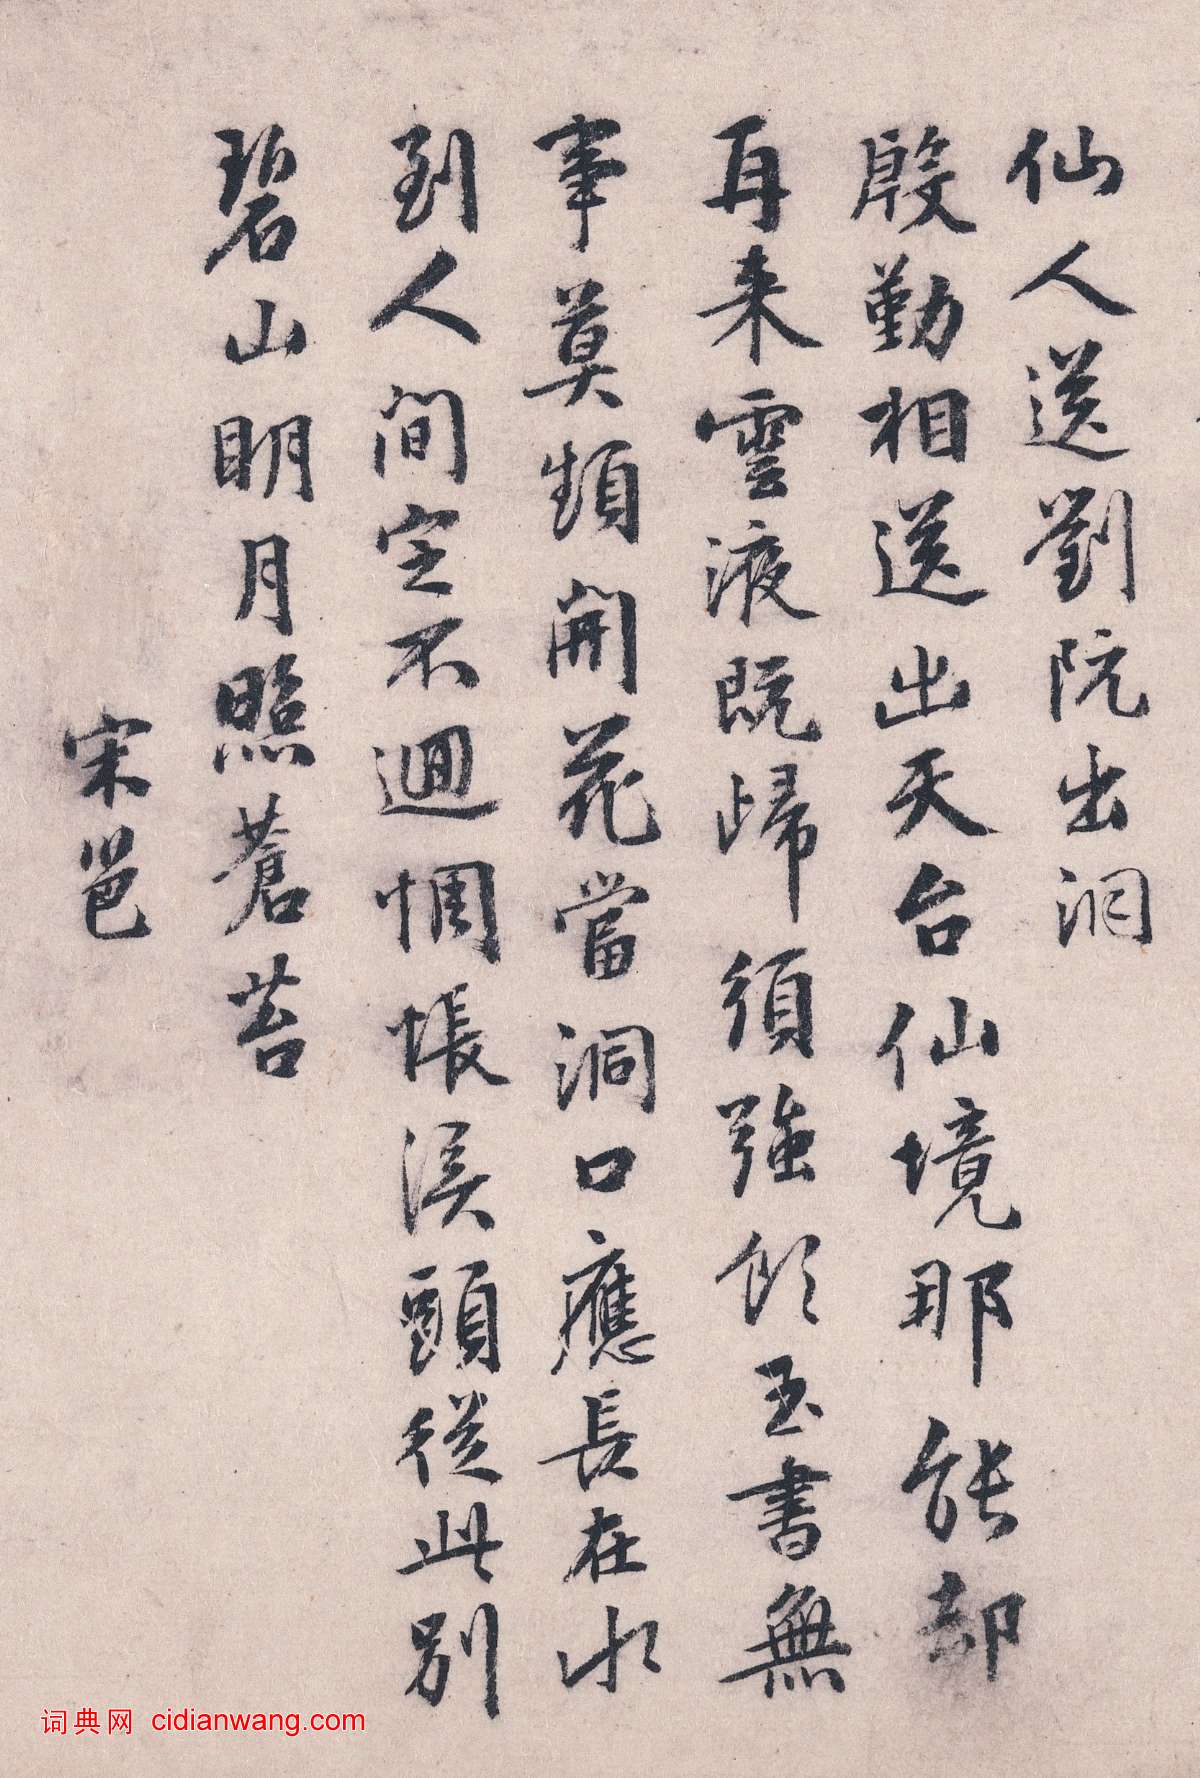 仙人送劉阮出洞
殷勤相送出天台仙境那能却
再来雲液既歸須強飲玉書無
事莫頻開花當洞口應長在水
到人間定不迴惆悵溪頭從此別
碧山明月照蒼苔
宋邕
词典网 cidianwang.com